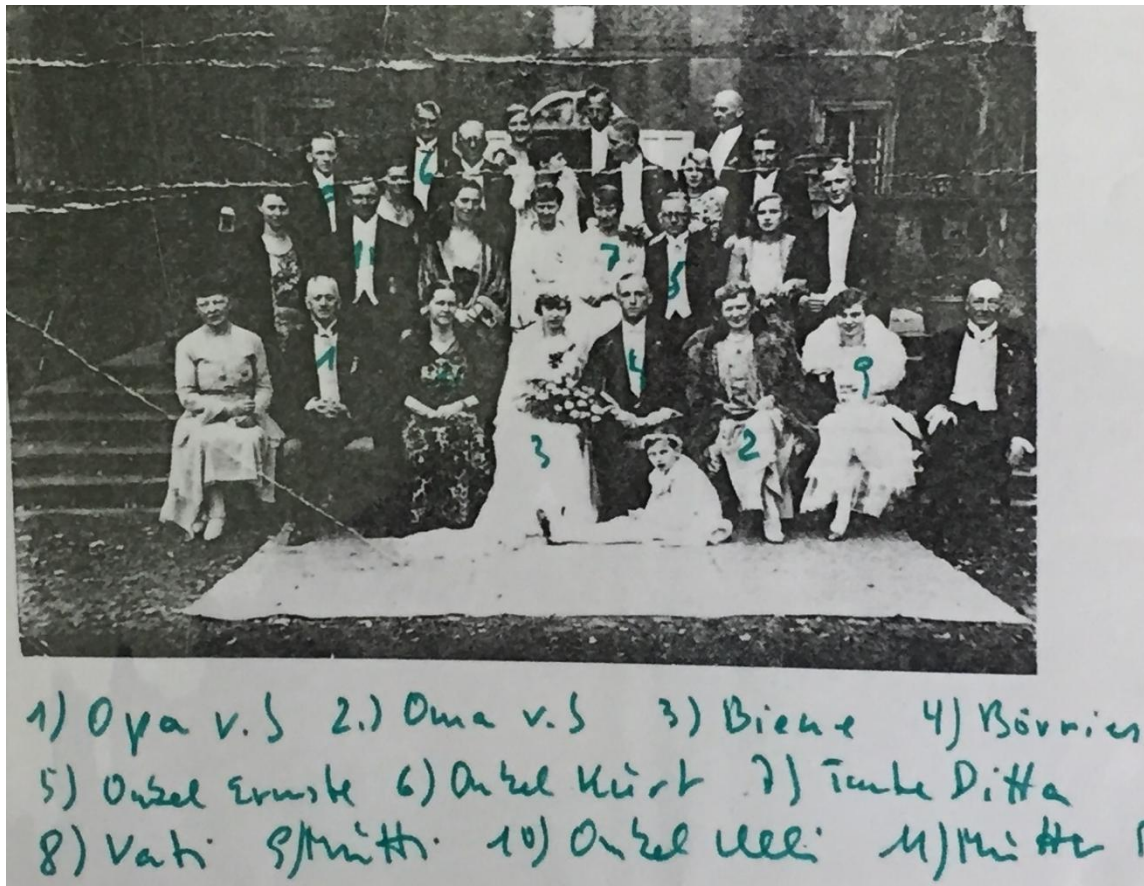 6
11
7
5
1
4
9
3
2
1) Opa v. S 2.) Oma v. S 3) Biene 4) Börries
5) Onkel Ernste 6) Onkel Kurt 7) Tante Ditta
8) Vati 9) Mutti 10) Onkel Ulli 11) Mutter